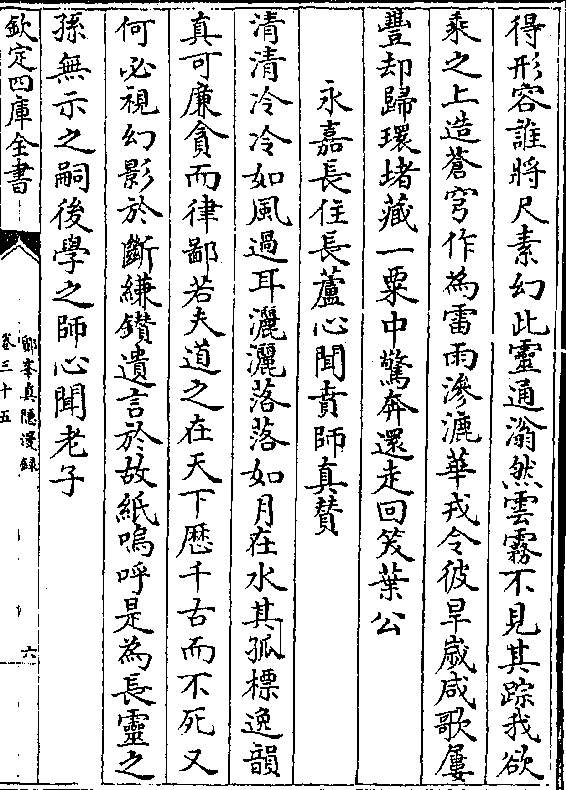 得形容誰將尺素幻此靈通滃然雲霧不見其踪我欲
乘之上造蒼穹作為雷雨滲漉華戎令彼旱歲咸歌屢
豐却歸環堵藏一粟中驚奔還走回笑葉公
永嘉長住長蘆心聞賁師真贊
清清冷冷如風過耳灑灑落落如月在水其孤標逸韻
真可廉貪而律鄙若夫道之在天下歷千古而不死又
何必視幻影於斷縑鑚遺言於故紙嗚呼是為長靈之
孫無示之嗣後學之師心聞老子
欽定四庫全書
鄮峯真隱漫録
卷三十五
六